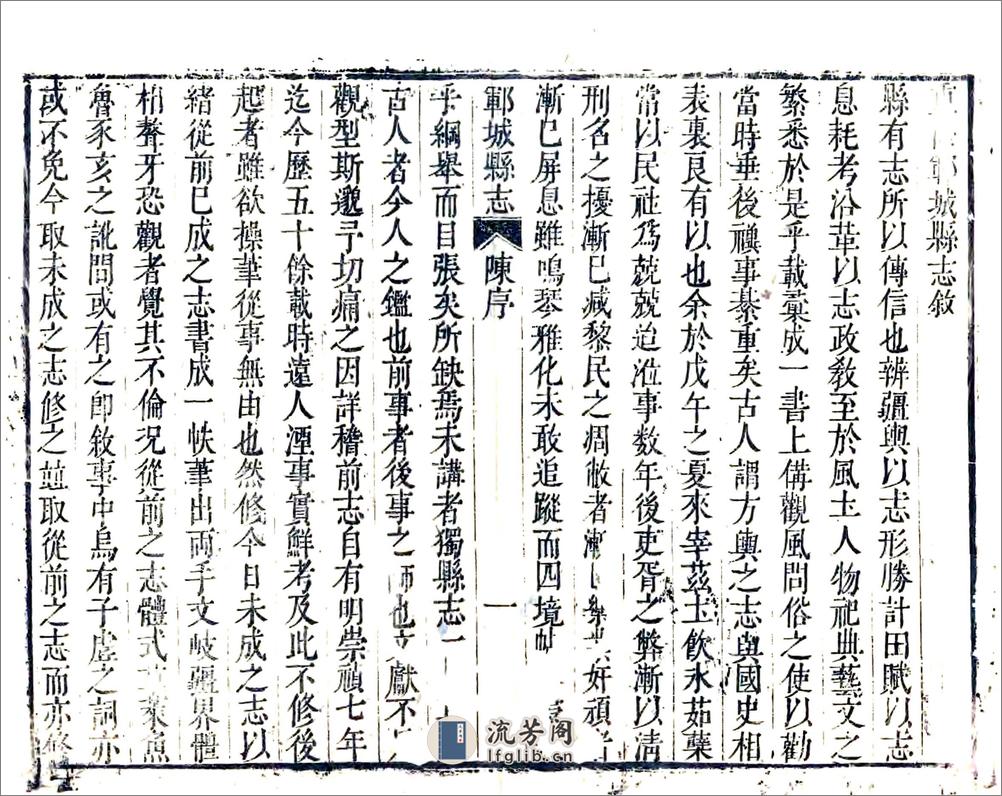 鄆城縣志敘
縣有志所以傳信也辨疆輿以志形勝計田賦以志
息耗考沿革以志政教至於風土人物祀典藝文之
繁悉於是乎載彙成一書上備觀風問俗之使以勸
當時垂後禩事綦重矣古人謂方輿之志與國史相
表裏良有以也余於戊午之夏來宰茲土飲氷茹蘗
常以民社爲兢兢迨涖事数年後吏胥之弊漸以淸
刑名之擾漸巳减黎民之凋敝者漸樂好頑
漸巳屏息雖鳴琴雅化未敢追蹤而四境帖
鄆城縣志 陳序 一
乎綱舉而目張矣所缺焉未講者獨縣志一
古人者今人之鑑也前事者後事之師也文獻不
觀型斯邈予切痛之因詳稽前志自有明崇禎七年
迄今歷五十餘載時遠人湮事實鮮考及此不修後
起者雖欲操筆從事無由也然修今日未成之志以
緒從前巳成之志書成一帙筆出兩手文岐疆界體
枘聱牙恐觀者覺其不倫況從前之志體式魚
魯豕亥之訛間或有之卽敘事中烏有子虛之詞亦
或不免今取未成之志修之並取從前之志而亦修
流芳阁
lfglib.com